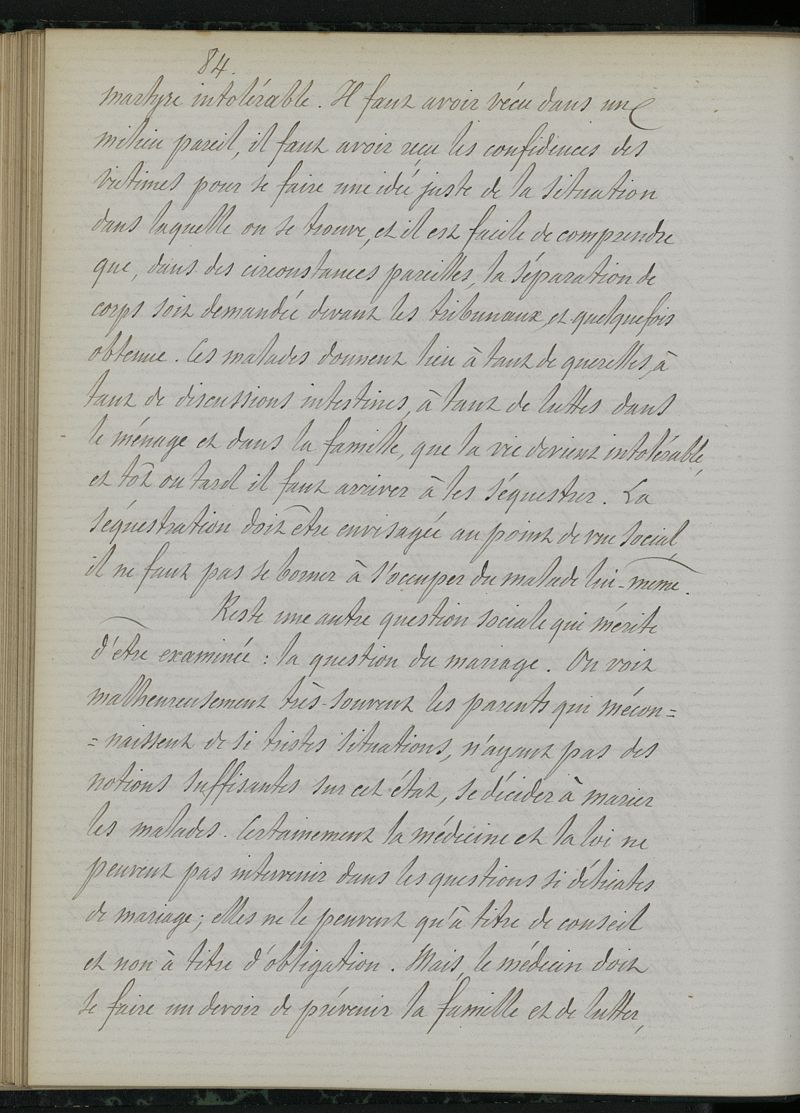 84.
martyre intolérable. Il faut avoir vécu dans un
milieu pareil, il faut avoir reçu les confidences des
victimes pour se faire une idée juste de la situation
dans laquelle on se trouve, et il est facile de comprendre
que, dans des circonstances pareilles, la séparation de
corps soit demandée devant les tribunaux et quelquefois
obtenue. Ces malades donnent lieu à tant de querelles, à
tant de discussions intestines, à tant de luttes dans
le ménage et dans la famille, que la vie devient intolérable,
et tôt ou tard il faut arriver à les séquestrer. La
séquestration doit être envisagée au point de vue social,
il ne faut pas se borner à s'occuper du malade lui-même.
Reste une autre question sociale qui mérite
d'être examinée : la question du mariage. On voit
malheureusement très-souvent les parents qui mécon=
=naissent de si tristes situations, n'ayant pas des
notions suffisantes sur cet état, se décider à marier
les malades. Certainement la médecine et la loi ne
peuvent pas intervenir dans les questions si délicates
de mariage ; elles ne le peuvent qu'à titre de conseil
et non à titre d'obligation. Mais, le médecin doit
se faire un devoir de prévenir la famille et de lutter,